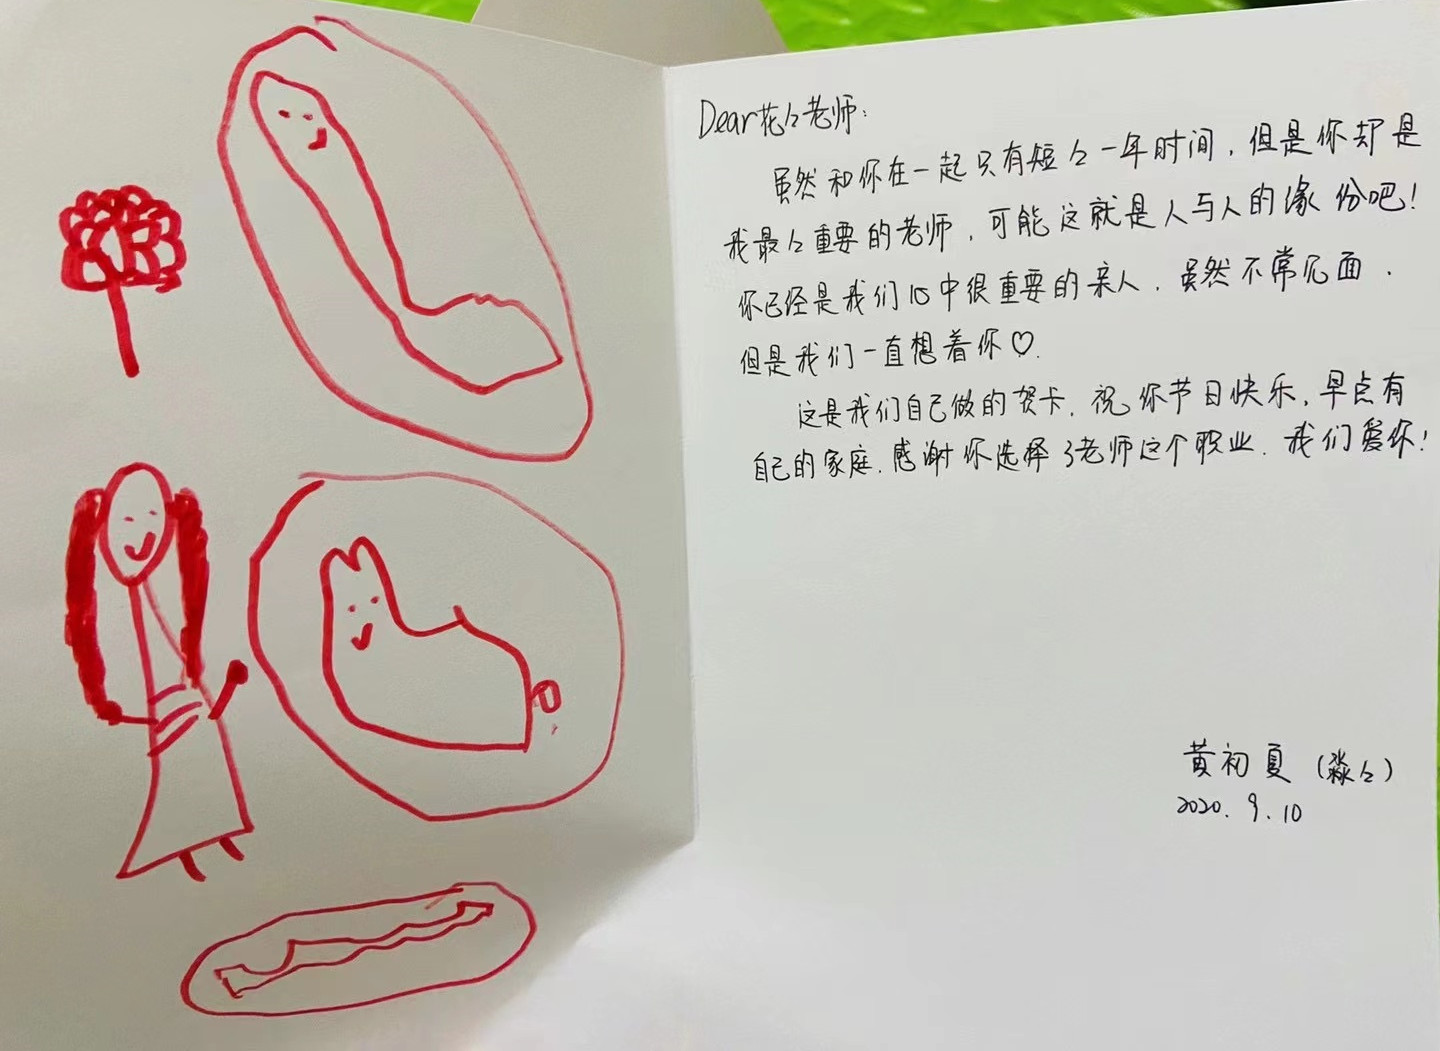 Dear花々老师：
虽然和你在一起只有短々一年时间，但是你却是
我最々重要的老师，可能这就是人与人的缘份吧！
你已经是我们心中很重要的亲人，虽然不常见面，
但是我们一直想着你♡.
这是我们自己做的贺卡，祝你节日快乐，早点有
自己的家庭，感谢你选择了老师这个职业，我们爱你！
黄初夏（淼々）
2020.9.10